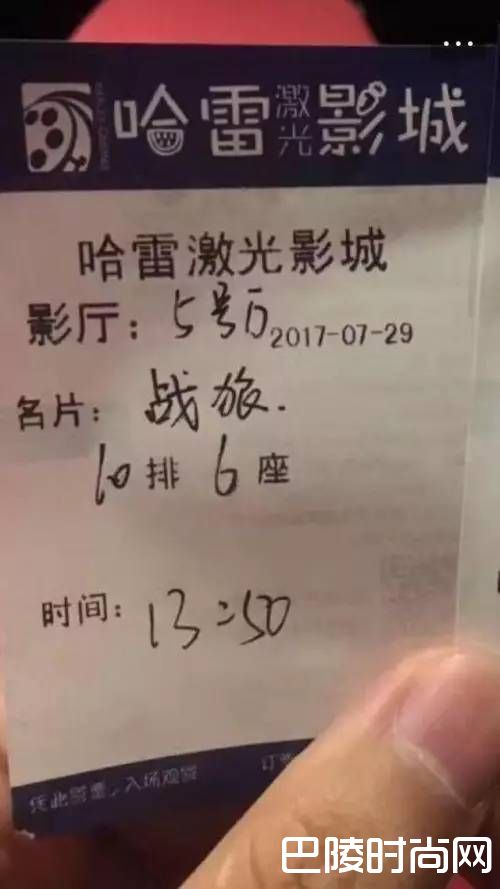 哈雷激光影城
哈雷激光影城
影厅：5号厅2017-07-29
名片：战旅.
10排6座
时间：13:50
凭此签票，入场观影
巴陵时尚网